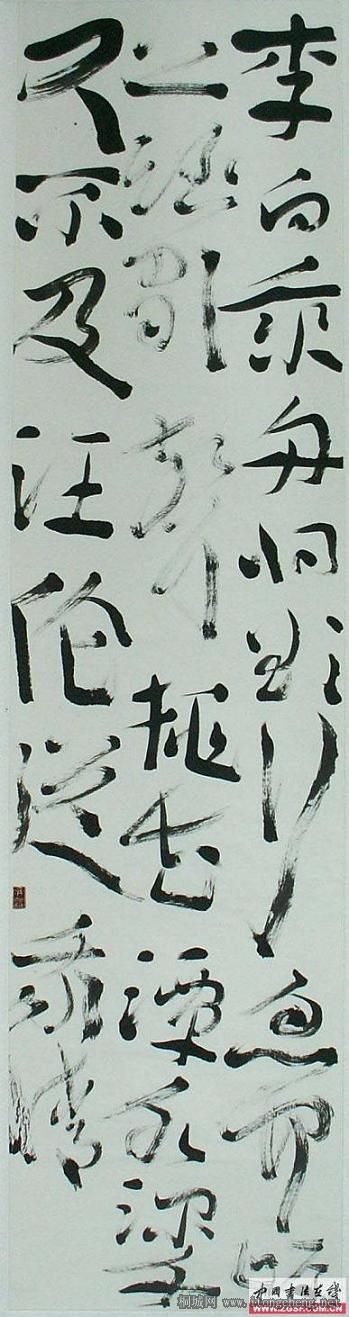 李白乘舟将欲行忽闻岸
上踏歌声桃花潭水深千
尺不及汪伦送我情
中国书法在线
WWW.ZGSF.COM.CN